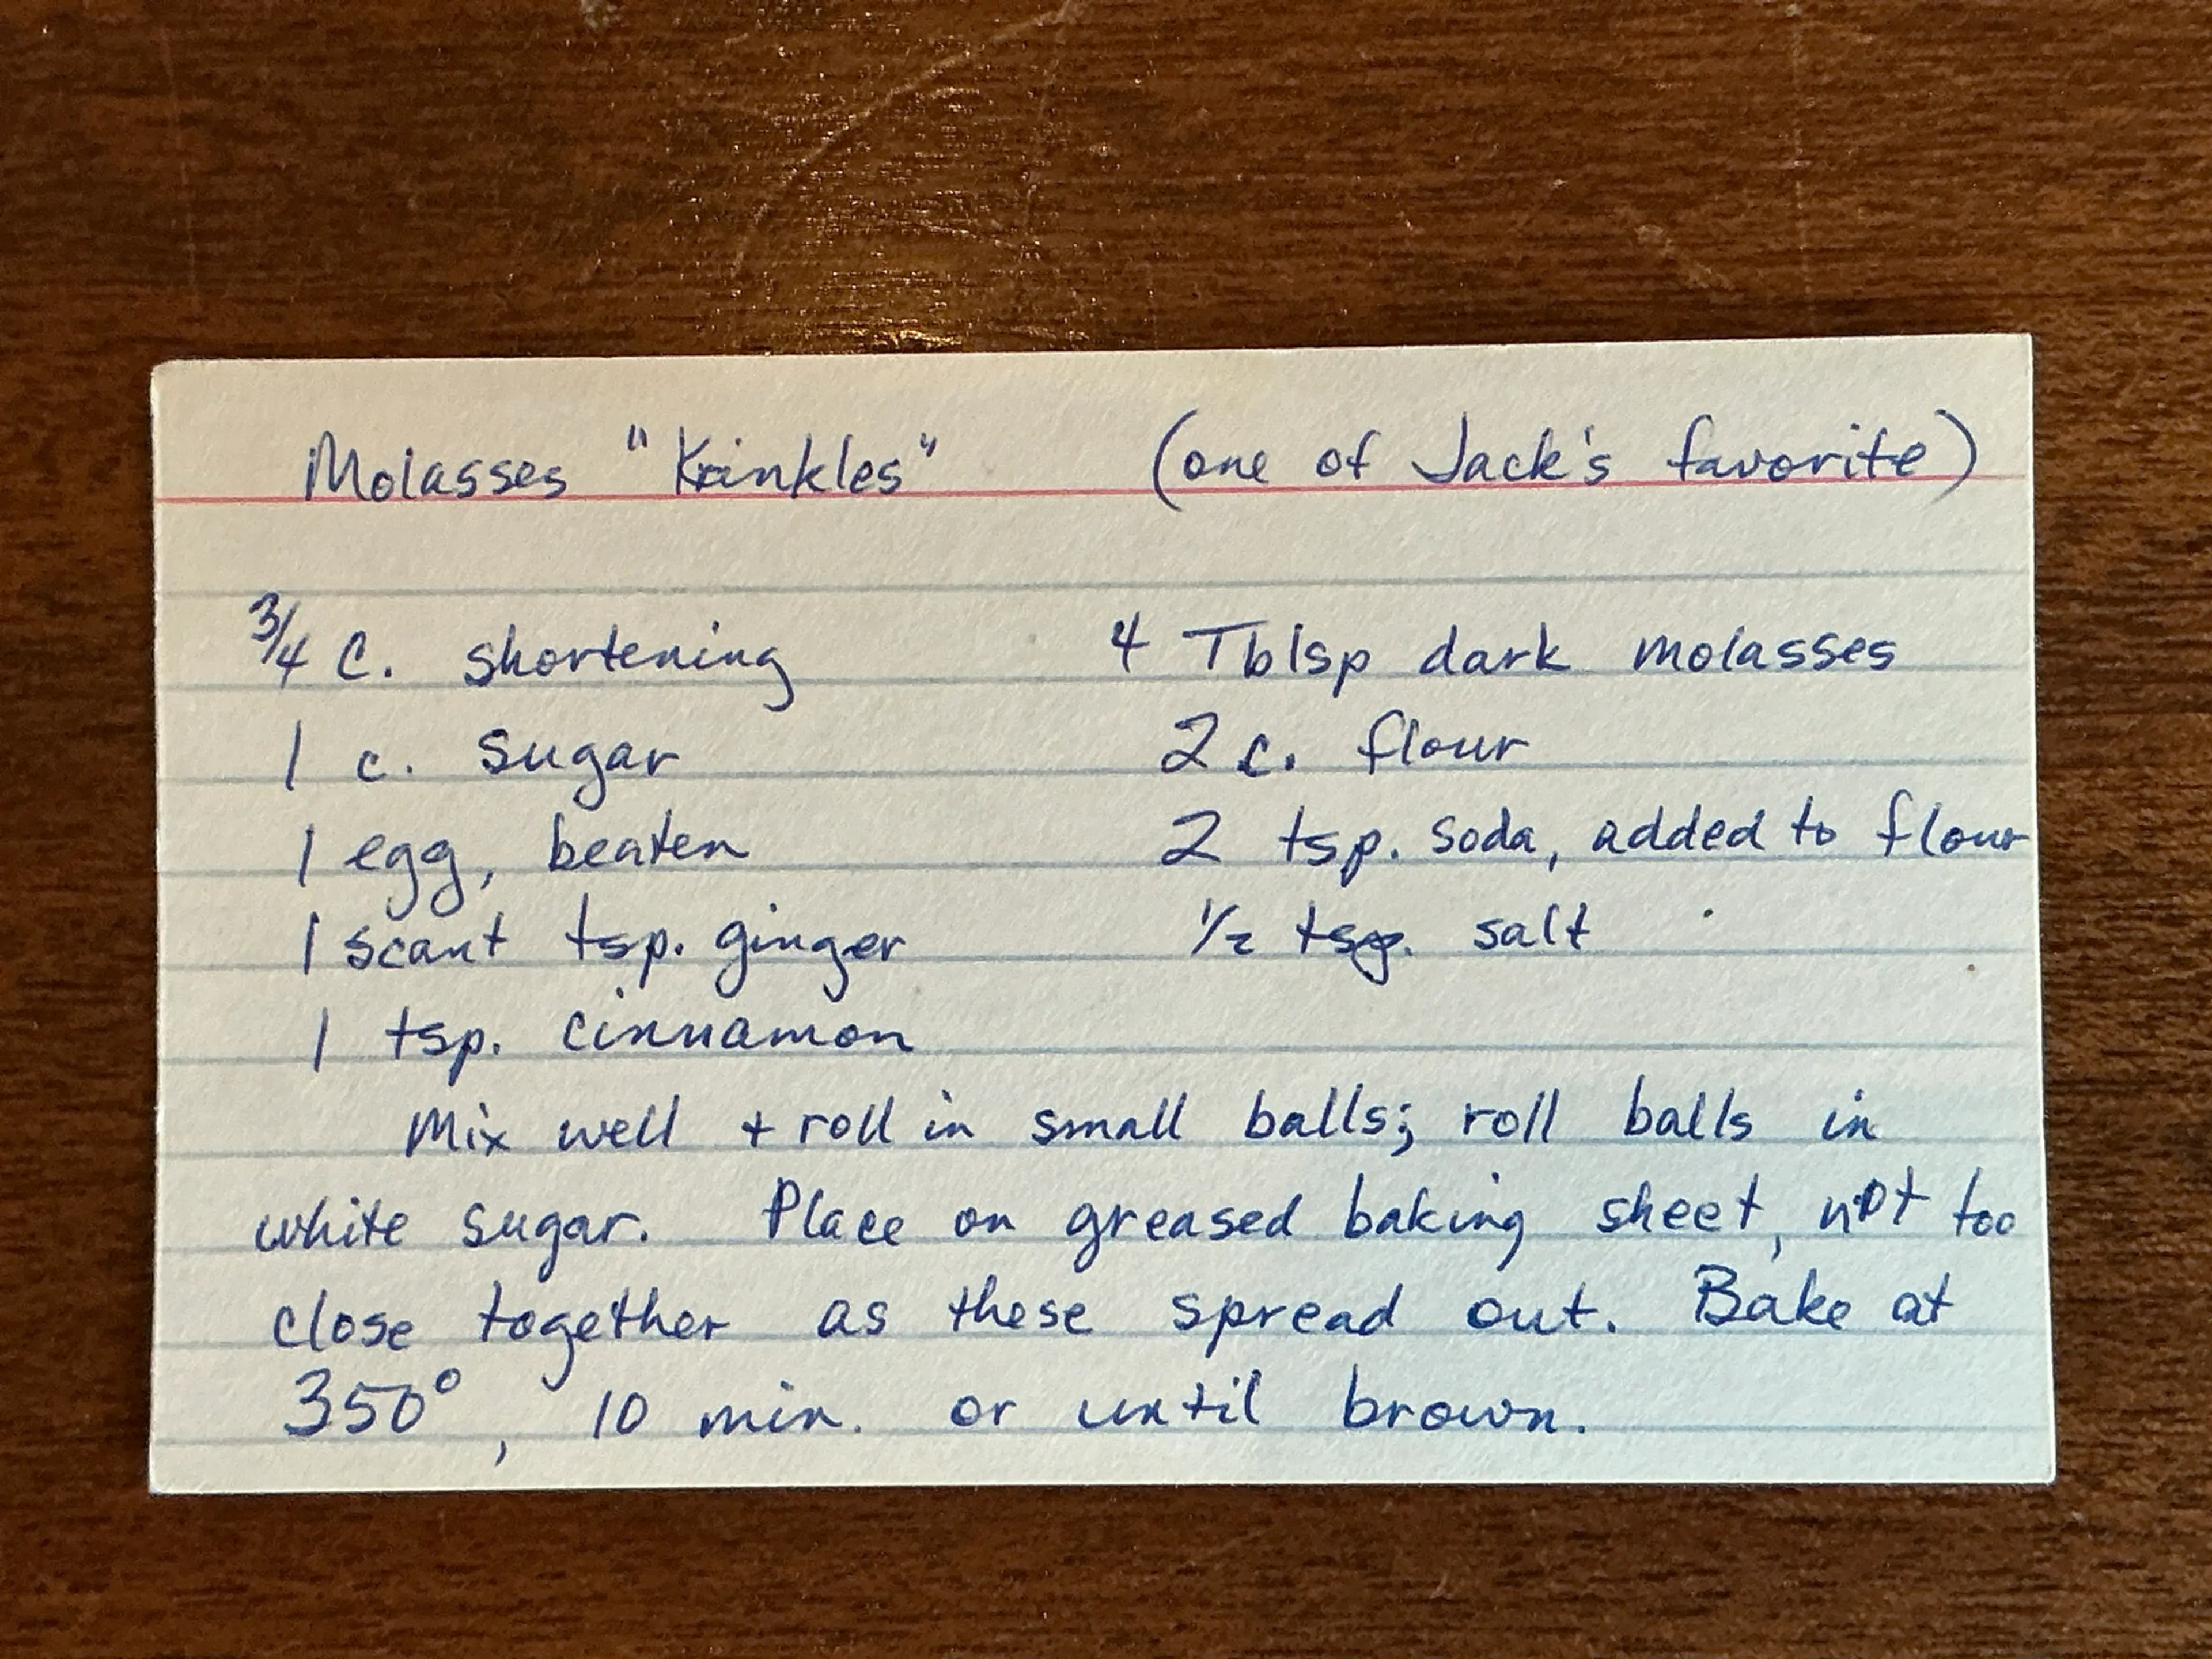 Molasses "Krinkles" (one of Jack's favorite)
3/4 C. shortening 4 Tblsp dark molasses
1 c. sugar 2 c. flour
1 egg, beaten 2 tsp. soda, added to flour
1 scant tsp. ginger 1/2 tsp. salt
1 tsp. cinnamon
Mix well + roll in small balls; roll balls in
white sugar. Place on greased baking sheet, not too
close together as these spread out. Bake at
350°, 10 min. or until brown.